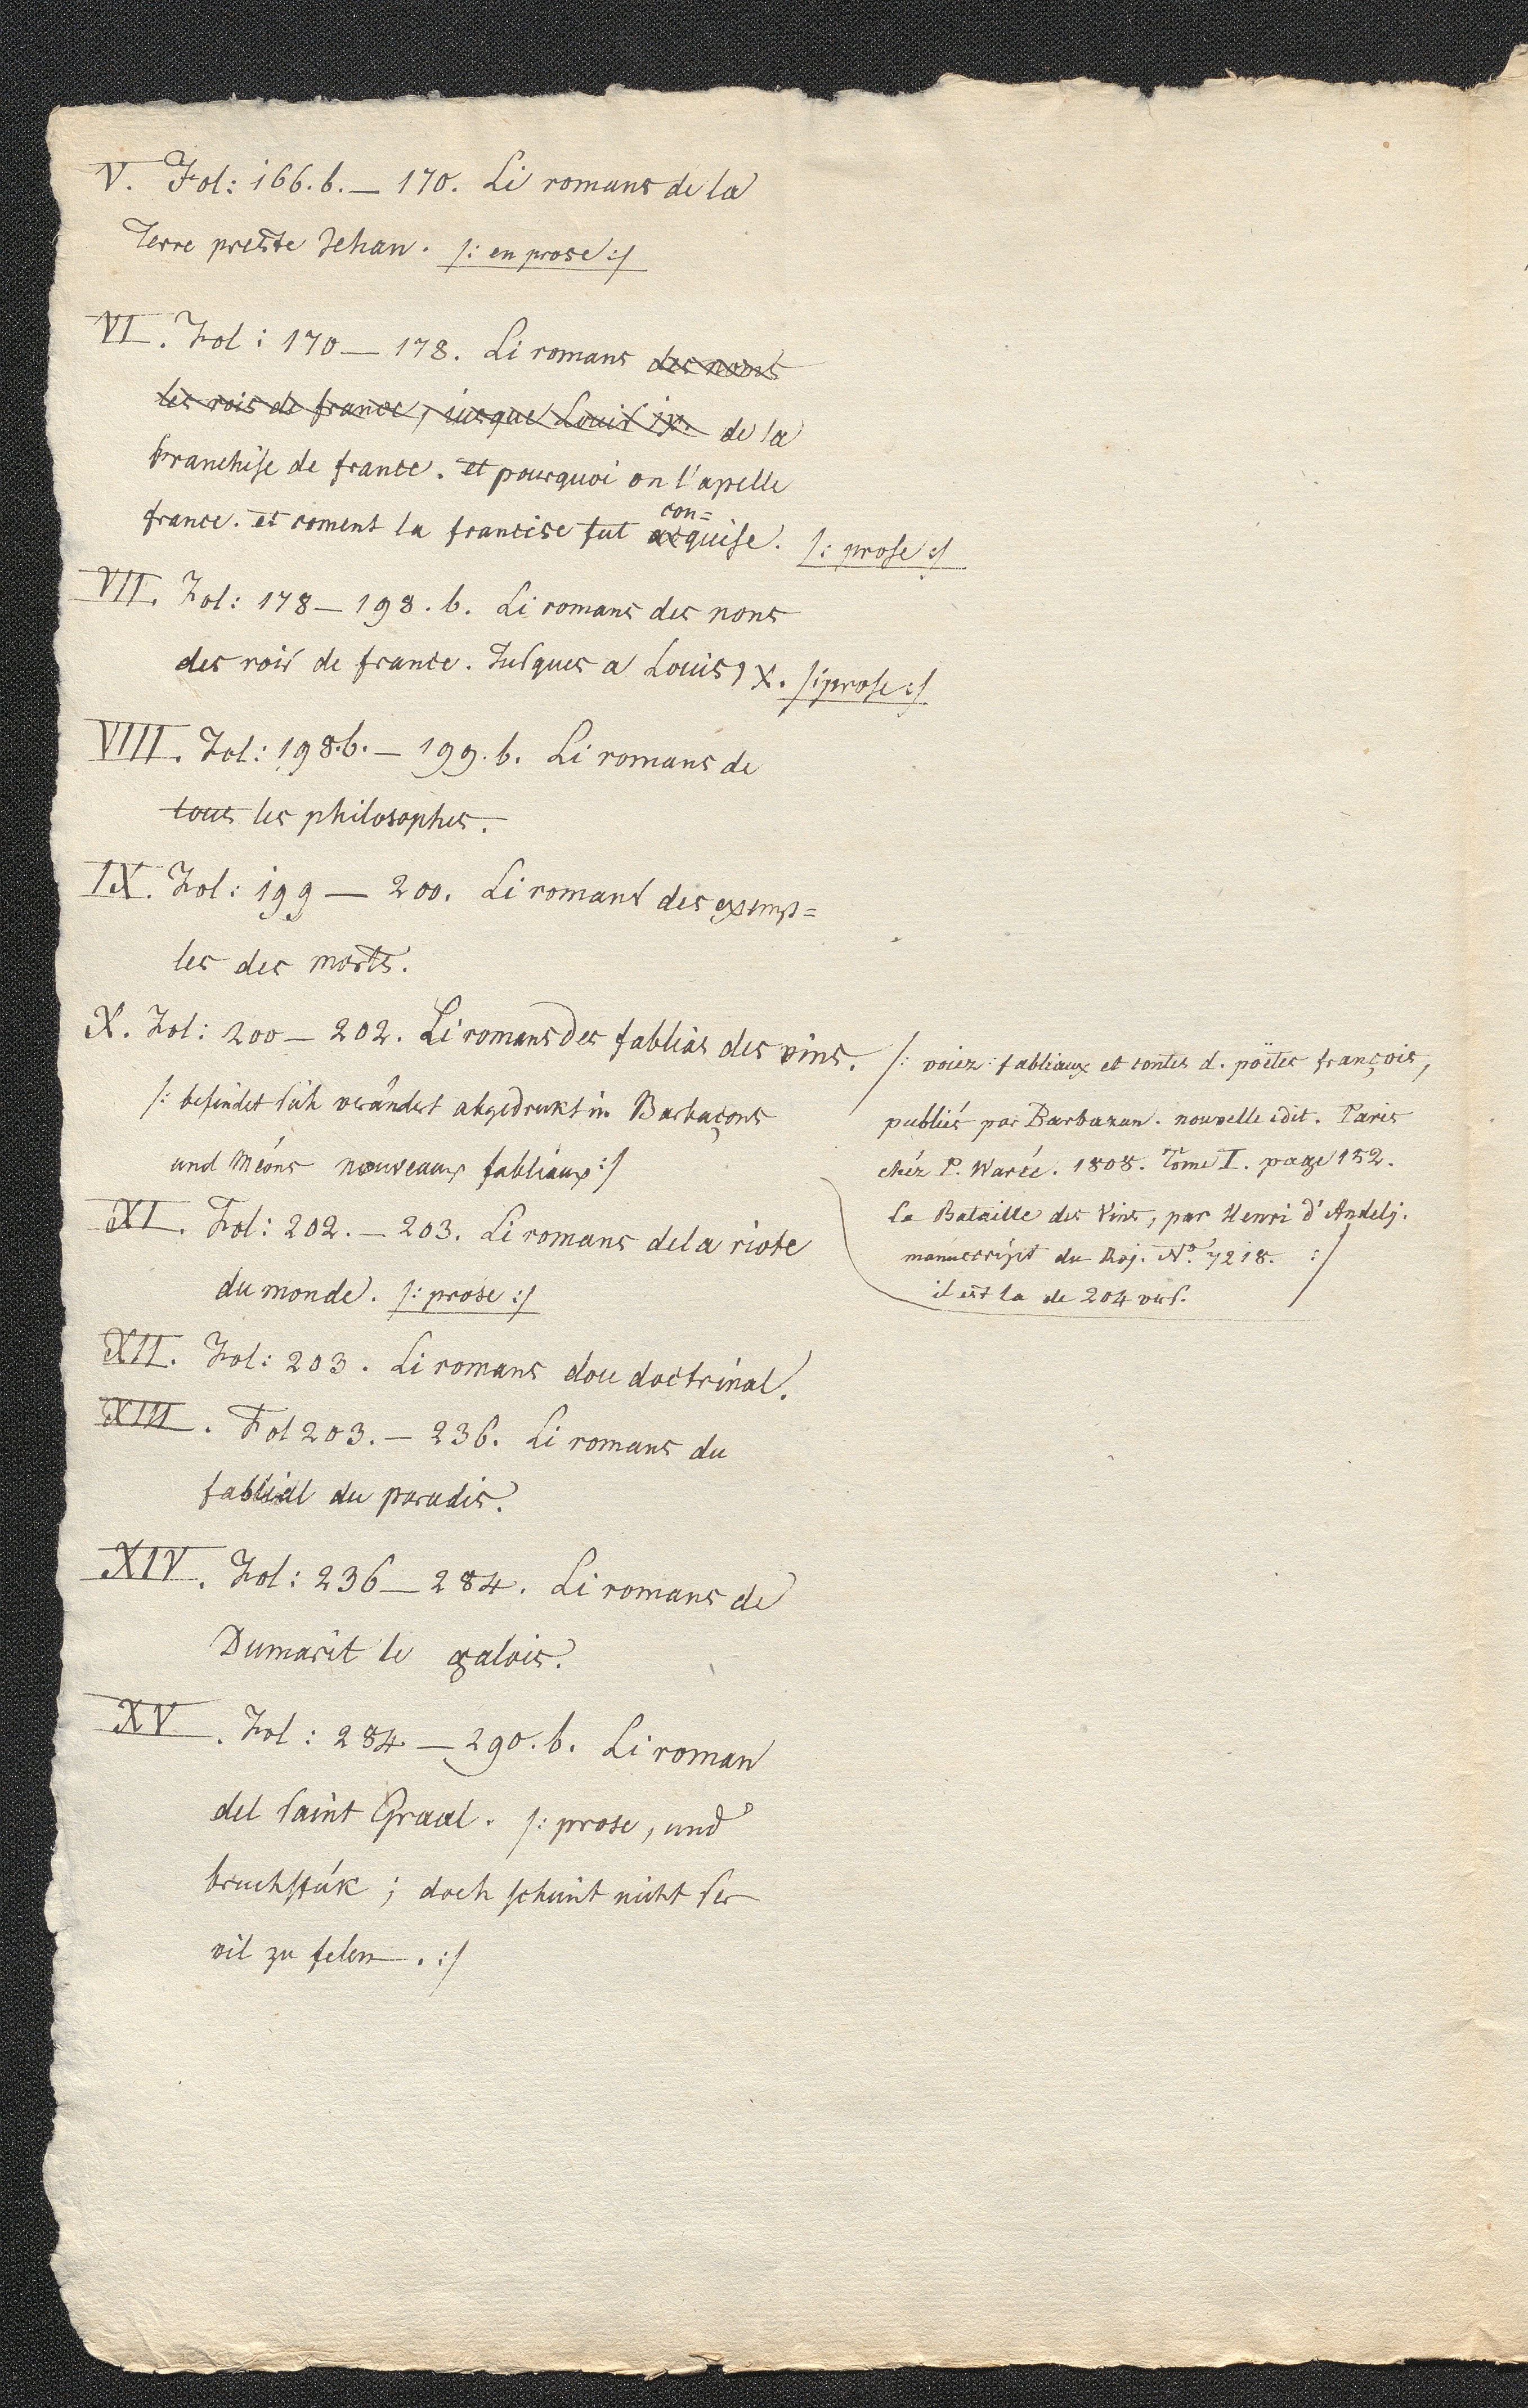 V. Fol: 166.b. — 170. Li romans de la
Terre prestre Jehan. /: en prose :/
VI. Fol: 170 — 178. Li romans des nons
les rois de france, iusque Louis ix. de la
franchise de france. et pourquoi on l'apelle
france. et coment la francise fut acquise. /: prose :/
con=
VII. Fol: 178 — 198.b. Li romans des nons
des rois de france. Jusques a Louis 9 X. /: prose :/
VIII. Fol: 198.b. — 199.b. Li romans de
tous les philosophes.
IX. Fol: 199 — 200. Li romans des exemp=
les des morts.
X. Fol: 200 — 202. Li romans des fablias des vins.
/: befindet sich verändert abgedrukt in Barbaçons
und Méons nouveaux fabliaux :/
/: voiez fabliaux et contes d. poëtes françois,
publiés par Barbazan. nouvelle edit. Paris
chéz P. Warée. 1808. Tome I. page 152.
La Bataille des Vins, par Henri d'Andelj.
manuscript du Roj. No. 7218. :/
il est la de 204 vers.
XI. Fol: 202. — 203. Li romans de la riote
du monde. /: prose :/
XII. Fol: 203. Li romans dou doctrinal.
XIII. Fol 203. — 236. Li romans du
fablial du paradis.
XIV. Fol: 236 — 284. Li romans de
Dumarit le galois.
XV. Fol: 284 — 290.b. Li roman
del saint Graal. /: prose, und
bruchstúk; doch scheint nicht ser
vil zu felen. :/